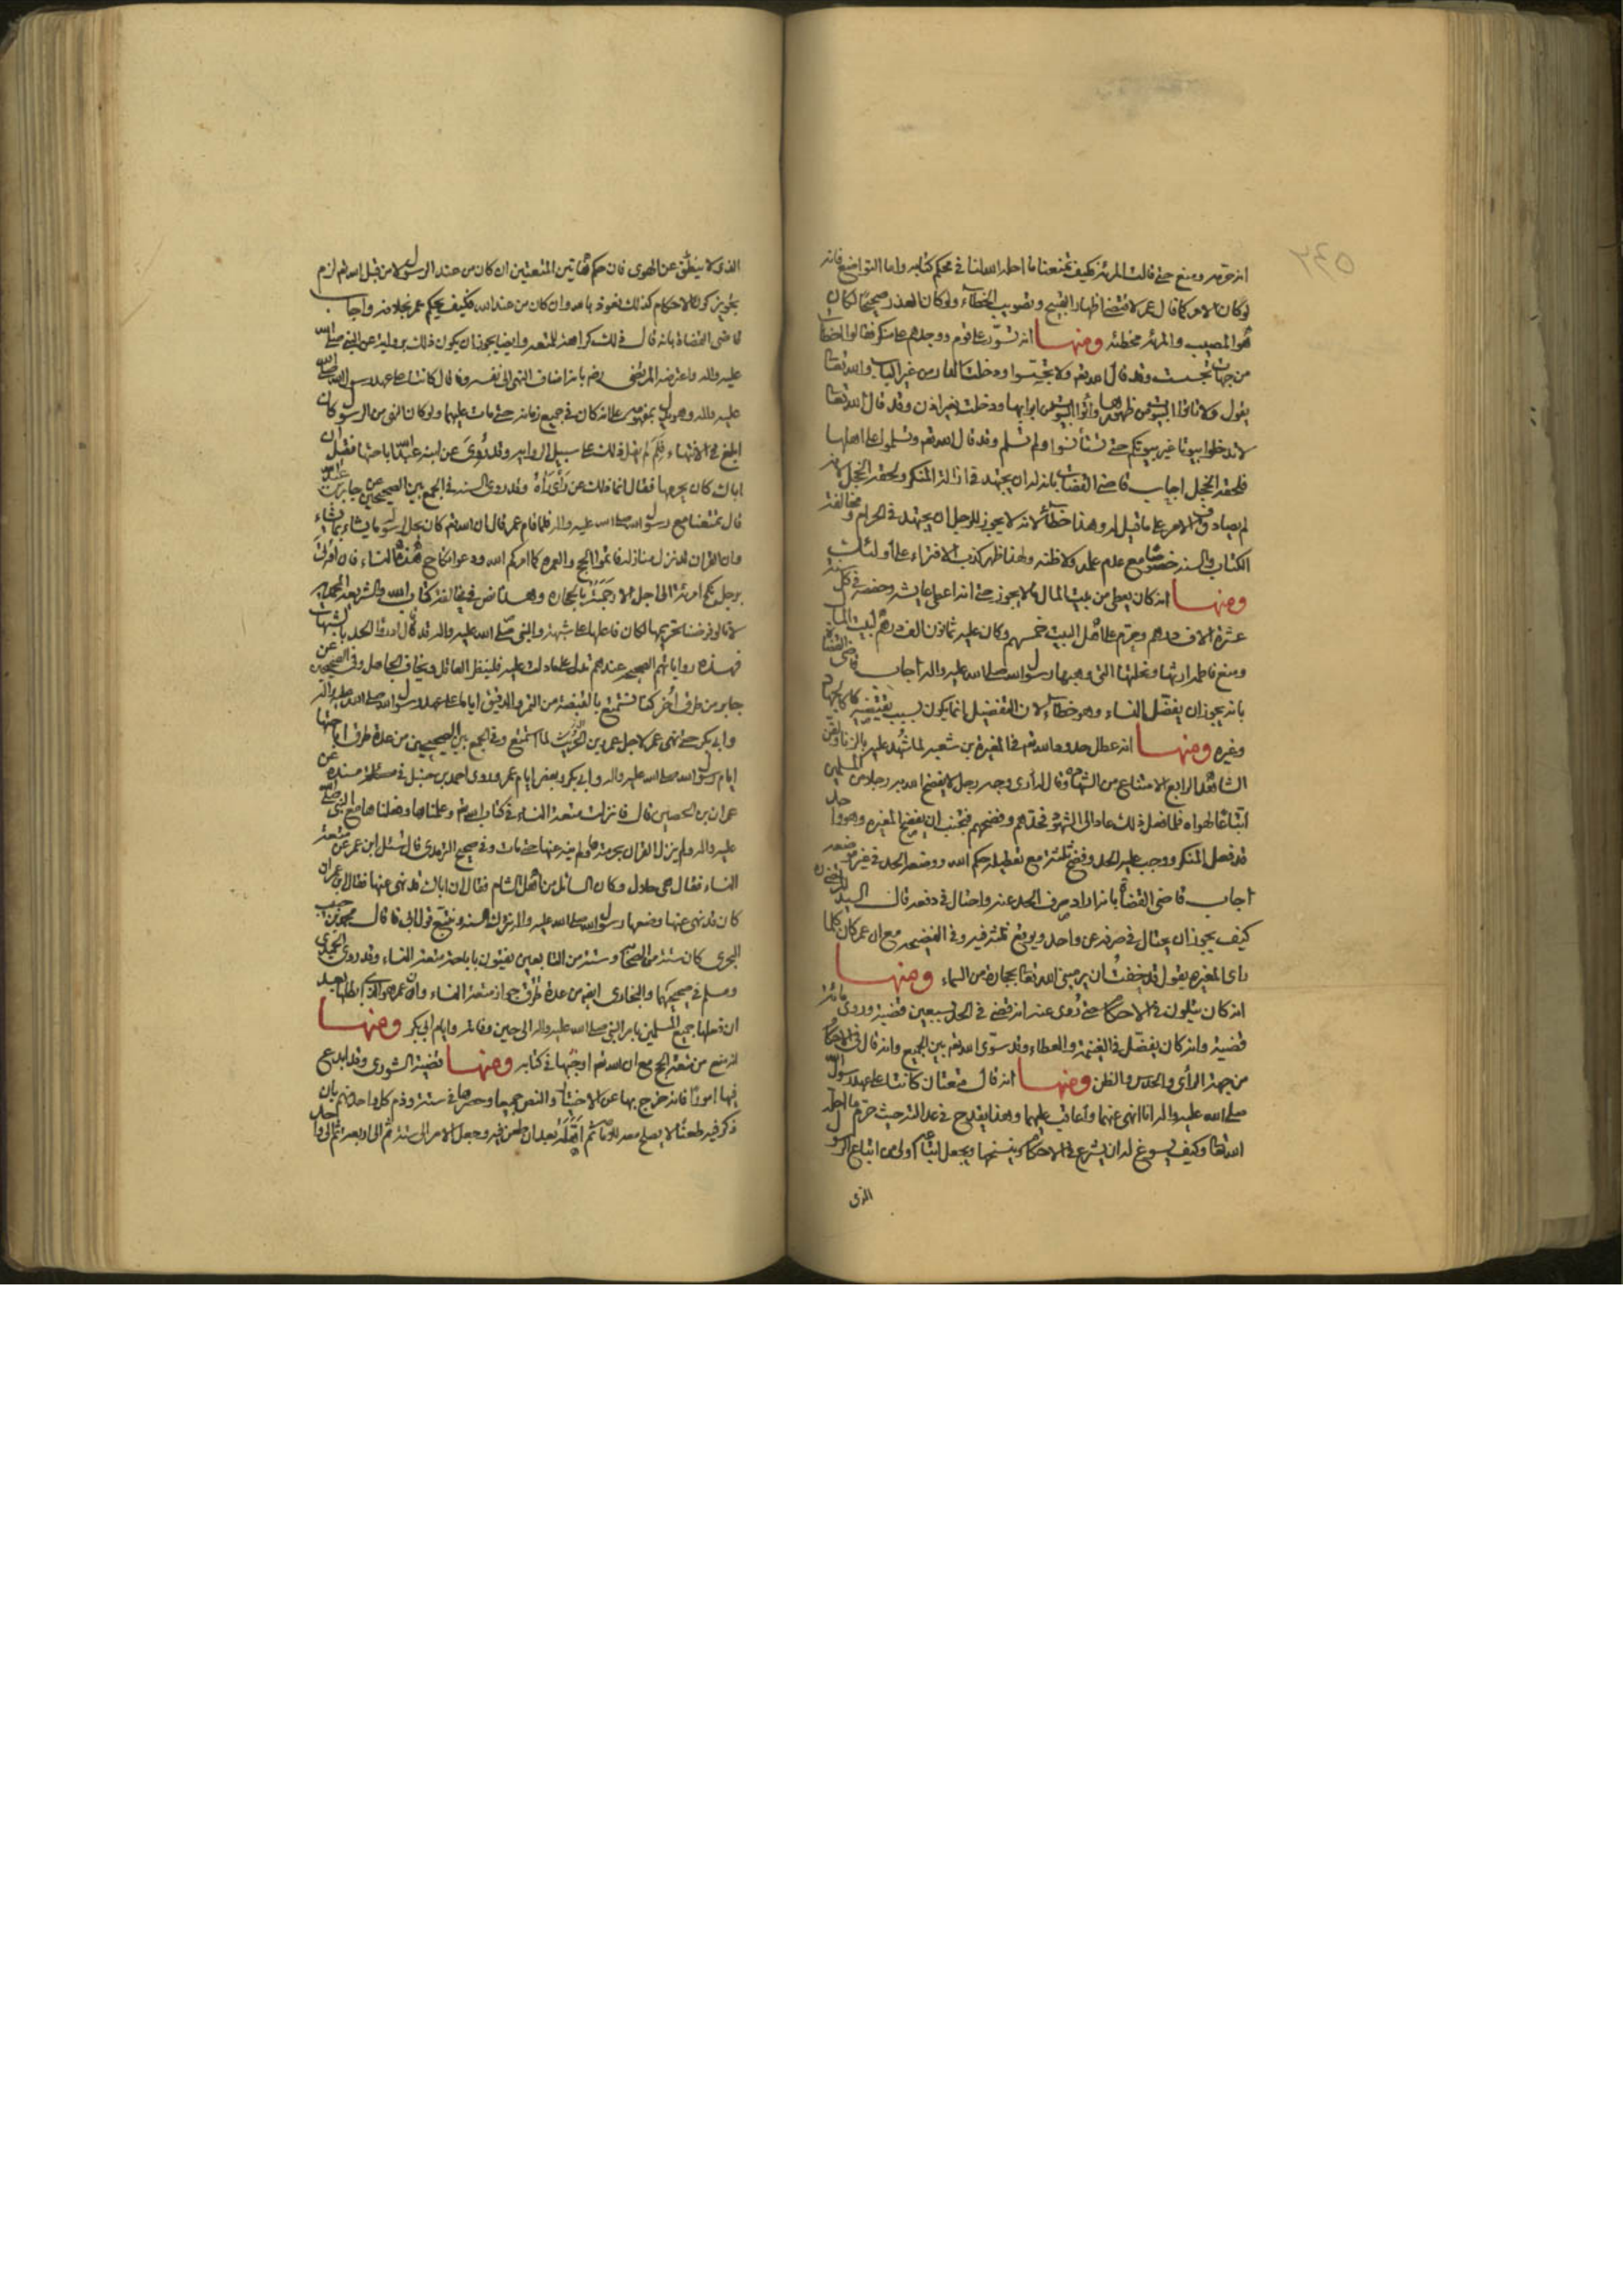 انه حرّمه ومنع حتى قالت المرئة كيف تمنعنا ما احله الله لنا في محكم كتابه واما التواضع فانه
لو كان الامر كما قال عمر لاقتضى اظهار القبيح وتصويب الخطاء ولو كان العذر صحيحا لكان
هو المصيب والمرئة مخطئة ومنها انه تسوّر على قوم ووجدهم على منكر فقالوا اخطأت
من جهات تجسست وقد قال الله تعه ولا تجسسوا ودخلت الدار من غير الباب والله تعالى
يقول ولا تاتوا البيوت من ظهورها وأتوا البيوت من ابوابها ودخلت بغير اذن وقد قال الله تعالى
لا تدخلوا بيوتا غير بيوتكم حتى تستأنسوا ولم تسلم وقد قال الله تعه وتسلموا على اهلها
فلحقه الخجل اجاب قاضي القضات بانه له ان يجتهد في ازالة المنكر ولحقه الخجل لانه
لم يصادف الامر على ما قيل له وهذا خطأ لانه لا يجوز للرجل ان يجتهد في الحرام ومخالفة
الكتاب والسنة خصوصا مع عدم علمه ولا ظنه ولهذا ظهر كذب الافتراء على أولئك
ومنها انه كان يعطى من بيت المال ما لا يجوز حتى انه اعطى عايشه وحفصة في كل سنة
عشرة الاف درهم وحرّم على اهل البيت خمسهم وكان عليه ثمانون الف درهم لبيت المال
ومنع فاطمة ارثها ونحلتها التي وهبها رسول الله صلى الله عليه واله أجاب قاضى القضاة
بانه يجوز ان يفضل النساء وهو خطاء لان التفضيل انما يكون لسبب يقتضيه كالجهاد
وغيره ومنها انه عطل حدود الله تعه في المغيرة بن شعبة لما شهد عليه بالزنا ولقن
الشاهد الرابع الامتناع من الشهادة وقال له أرى وجه رجل لا يفضح الله به رجلا من المسلمين
اتباعا لهواه فلما فعل ذلك عاد الى الشهود فحدّهم وفضحهم فتجنب ان يفضح المغيره وهو واحد
قد فعل المنكر ووجب عليه الحد وفضح ثلثة مع تعطيله حكم الله ووضعه الحد في غير موضعه
أجاب قاضى القضاة بانه اراد صرف الحد عنه واحتال في دفعه قال السيد المرتضى ره
كيف يجوز ان يحتال في صرفه عن واحد ويوقع ثلثة فيه وفي الفضيحة مع ان عمر كان كلما
راى المغيره يقول قد خفت ان يرميني الله تعا بحجارة من السماء ومنها
انه كان يتلون في الاحكام حتى رُوى عنه انه قضى في الحد بسبعين قضية وروى مائة
قضية وانه كان يفضّل في الغنيمة والعطاء وقد سوّى الله تعه بين الجميع وانه قال في الاحكام
من جهة الرأى والحدس والظن ومنها انه قال متعتان كانتا على عهد رسول الله
صلى الله عليه واله انا انهى عنهما وأعاقب عليهما وهذا يقدح في عدالته حيث حرّم ما احله
الله تعا وكيف يسوغ له ان يشرع في الاحكام وينسخها ويجعل اتباعه أولى من اتباع الرسول
الذى
الذى لا ينطق عن الهوى فان حكم هاتين المتعتين ان كان من عند الرسول لا من قبل الله تعه لزم
تجويز كون الاحكام كذلك نعوذ بالله وان كان من عند الله فكيف يحكم عمر بخلافه واجاب
قاضى القضاة بانه قال ذلك كراهة للمتعه وايضا يجوز ان يكون ذلك برواية عن النبي صلى الله
عليه واله واعترضه المرتضى رضه بانه اضاف النهى الى نفسه وقال كانتا على عهد رسول الله صلى الله
عليه واله وهو يدل بمفهومه على انه كان في جميع زمانه حتى مات عليهما ولو كان النهى من الرسول كان
ابلغ في الانتهاء فلِمَ لم يقل ذلك على سبيل الرواية وقد رُوى عن ابنه عبد الله اباحتها فقيل له ان
اباك كان يحرمها فقال انما ذلك عن رأى رآه وقد روى السنة في الجمع بين الصحيحين عن جابر بن عبد الله
قال تمتعنا مع رسول الله صلى الله عليه واله فلما قام عمر قال ان الله تعه كان يحل لرسوله ما يشاء بما يشاء
وان القران قد نزل منازله فاتموا الحج والعمرة كما امركم الله ودعوا نكاح هذه النساء فان أوتى
برجل نكح امرئة الى اجل الا رجمته بالحجارة وهذا نص في مخالفة كتاب الله والشريعة المحمدية
لانا لو فرضنا تحريمها لكان فاعلها على شبهة والنبى صلى الله عليه واله قد قال ادرؤا الحد بالشبهات
فهذه رواياتهم الصحيحة عندهم تدل على ما دلت عليه فلينظر العاقل ويخاف الجاهل وفي الصحيحين عن
جابر من طرف اُخر كنا نستمتع بالقبضة من التمر والدقيق ايام على عهد رسول الله صلى الله عليه واله
وابى بكر حتى نهى عمر لاجل عمرو بن الحُرَيث لما استمتع وفي الجمع بين الصحيحين من عدة طرق اباحتها
ايام رسول الله صلى الله عليه واله وابى بكر وبعض ايام عمر وروى احمد بن حنبل في مسنده عن
عمران بن الحصين قال قد نزلت متعة النساء في كتاب الله تعه وعلمناها وفعلناها مع النبى صلى الله
عليه واله ولم ينزل القران بحرمته ولم ينه عنها حتى مات وفي صحيح الترمذى قال سئل ابن عمر عن متعة
النساء فقال هى حلال وكان السائل من اهل الشام فقال ان اباك قد نهى عنها فقال ابن عمر ان
كان قد نهى عنها وصنعها رسول الله صلى الله عليه واله نترك السنة ونتبع قول ابى قال محمد بن حبيب
البحرى كان ستة من الصحابة وستة من التابعين يفتون باباحة متعة النساء وقد روى الحميدى
ومسلم في صحيحيهما والبخارى ايضه من عدة طرق جواز متعة النساء وان عمر هو الذى ابطلها بعد
ان فعلها جميع المسلمين بامر النبى صلى الله عليه واله الى حين وفاته وايام ابى بكر ومنها
انه منع من متعة الحج مع ان الله تعه اوجبها في كتابه ومنها قضية الشورى وقد ابدع
فيها امورا فانه خرج بها عن الاختيار والنص جميعا وحصرها في ستة وذم كل واحد منهم بان
ذكر فيه طعنا لا يصلح معه للامامة ثم اَهَّلَه بعد ان طعن فيه وجعل الامر الى ستة ثم الى اربعة ثم الى واحد